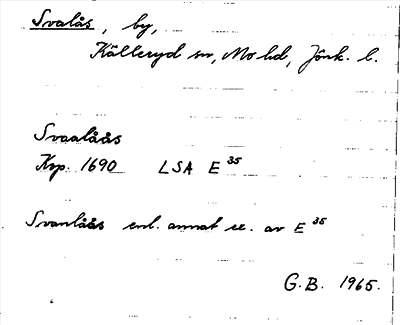 Svalås, by,
Källeryd sn, Mo hd, Jönk. l.
Svaalåås
Kop. 1690 LSA E 35
Svanlåås enl. annat ex. av E 35
G.B. 1965.